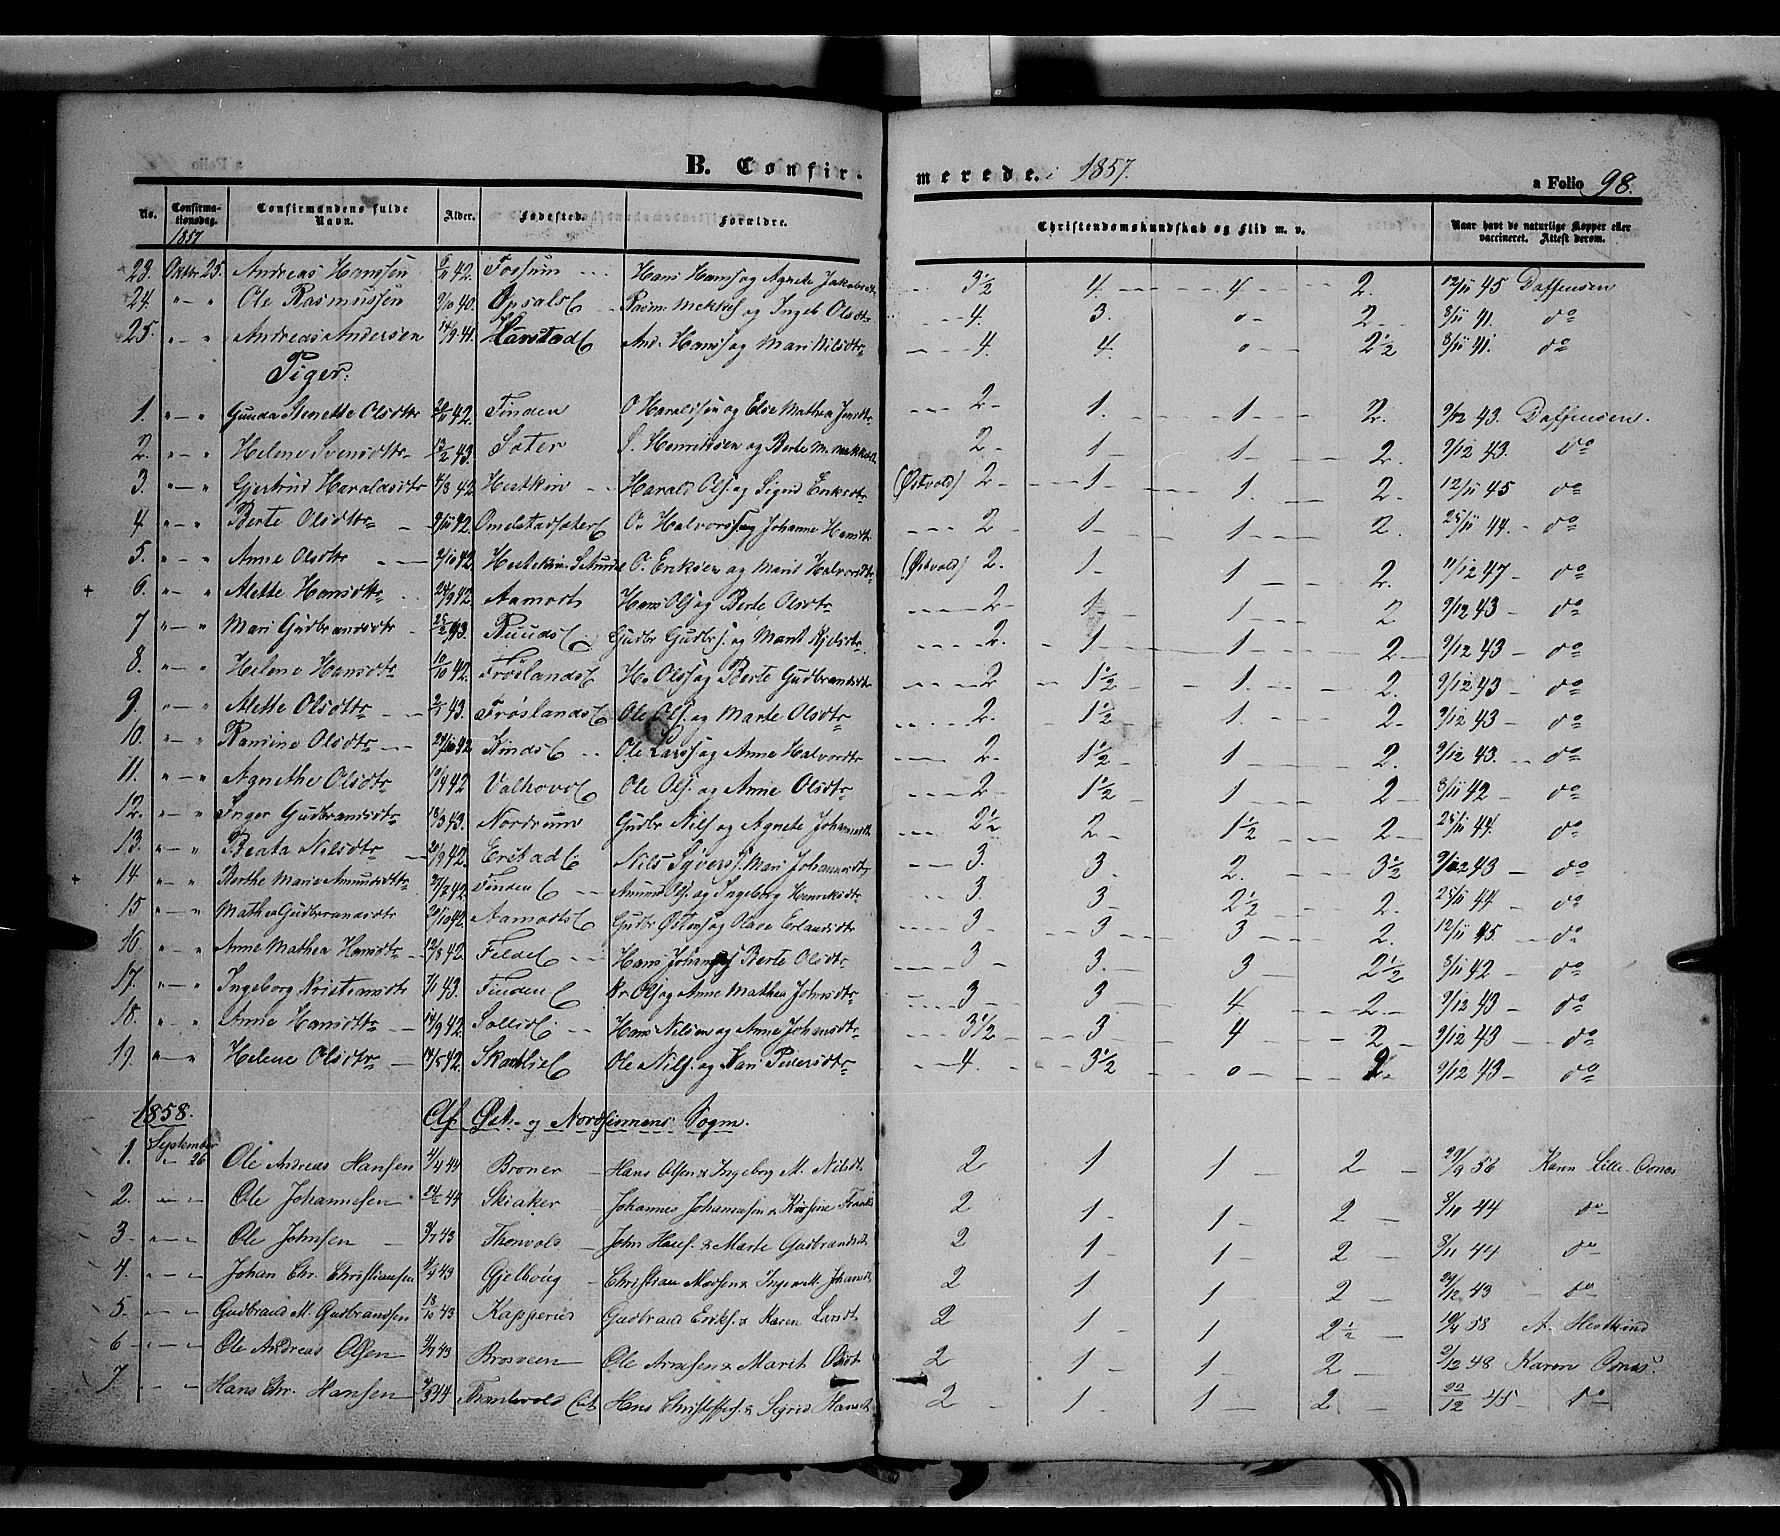 B. Confir- merede. i 1857. a Folio 98.
No. Confirmationsdag. Confirmandens fulde Navn. Alder. Fødested. Forældre. Christendomskundskab og Flid m. v. Naar havt de naturlige Kopper eller vaccineret. Attest derom.
1857
23. Oktbr 25. Andreas Hanssen 6/11 42. Fossum Hans Hanss og Agnete Jakobsdtr 3 1/2 4 4 2. 12/11 45
24. " — " Ole Rasmussen 9/10 40. Opsals E Rasm. og Ingeb Olsdtr 4. 3. 0 2 8/11 41. do
25. " — " Andreas Andersen 14/9 41. Hanstad E And. Hanss og Mari Nilsdtr 4. 4. 0 2 1/2 8/11 41. do
Piger.
1. " — " Gunda Olsdtr 20/11 42. Finden O Haralssen og Else Mathea Jensdtr 2 1. 1 2. 9/12 43.
2. " — " Helene Svensdtr 13/2 43. Sæter S. Henriksen og Berte M. 2 1 1 2. 9/12 43. do
3. " — " Gjertrud Haraldsdtr 4/8 42 Hestkin Harald Ols. og Sigrid Eriksdtr (Østvold) 2 1 1. 2. 12/11 45 do
4 " — " Berte Olsdtr 9/11 42. Omdstadsæter E O. Halvorss og Johanne Hansdtr 2 1 1 2. 25/11 44. do
5. " — " Anne Olsdtr 2/10 42. Hestekin O. Eriksen og Marit Halvorsdtr (Østvold) 2. 1 1 2. 11/12 47 do
6. " — " Mette Hansdtr 24/9 42. Aamodts Hans Ols og Berte Olsdtr 2 1 1 2 9/12 43 do
7 " — " Mari Gudbrandsdtr 25/2 43. Ruuds E Gudbr Gudbrs. og Marit Kjelsdtr 2. 1 1 2 9/12 43 do
8. " — " Helene Hansdtr 10/10 42. Frøslands E H. Olss og Berte Gudbrandsdtr 2 1 1/2 1. 2. 9/12 43 do
9. " — " Mette Olsdtr 2/1 43. Frøslands E Ole Ols. og Marte Olsdtr 2. 1 1/2 1. 2 9/12 43 do
10. " — " Ramine Olsdtr 24/10 42. Kinds E Ole Larss og Anne Halvorsdtr 2 1 1/2 1 2. 9/12 43. do
11. " — " Agnethe Olsdtr 19/4 42 Valhovd E Ole Ols. og Anne Olsdtr 2 1 1/2 1 2 8/11 42 do
12. " — " Inger Gudbrandsdtr 18/3 43. Nordrum Gudbr Nils og Agnete Johannesdtr 2 1/2 2 1 1/2 2 25/11 44. do
13. " — " Beata Nilsdtr 20/9 42. Erstad E. Nils Syvers. Mari Johannesdtr 3. 3. 2. 3 1/2 9/12 43 do
14 " — " Berthe Marie Amundsdtr 27/2 42. Finden E Amund Ols. og Ingeborg Henriksdtr 3. 3. 2 1/2 2. 25/11 44 do
15 " — " Mathea Gudbrandsdtr 20/10 42. Aamodts E Gudbr Østens og Olava Erlandsdtr 3 3 3 2. 12/11 45. do
16. " — " Anne Mathea Hansdtr 12/8 42. Felde E Hans Johans og Berte Olsdtr 3 3. 3 2 1/2 8/11 42 do
17. " — " Ingeborg Kristiansdtr 7/1 43. Finden E Kr Ols og Anne Mathea Johnsdtr 3 3 4 2. 9/12 43 do
18. " — " Anne Hansdtr 14/9 42. Sollid E. Hans Nilsen og Anne Johansdtr 3 1/2 3 4 2 9/12 43 do
19. " — " Helene Olsdtr 14/5 42. Skartlie E Ole Nils. og Kari Pedersdtr 4. 3 1/2 0 2. 9/12 43 do
1858. Af Øst- og Nordsinnens Sogn.
1. September 26 Ole Andreas Hansen 4/4 44 Broner Hans Olsen & Ingeborg M. Nilsdt 2 1 1 2 29/9 56 Karn Lille-Odnæs
2. " — " Ole Johannesen 24/2 44 Skiaker Johannes Johannesen & 2 1 1 2 8/11 44 do
3 " — " Ole Johnsen 3/7 43 Thonvold John Hans. & Marte Gudbrandsdt 2 1 1 2 8/11 44 do
4. " — " Johan Chr. Christiansen 4/4 43 Gjelboug Christian & Inger M. Johansdt 2 1 1 2 29/12 43 do
5. " — " Gudbrand M. Gudbrandsen 18/10 43 Kapperud Gudbrand Eriks. & Karen Larsdt 2 1 1 2 1/2 10/4 58 A. Hestkind
6 " — " Ole Andreas Olsen 4/7 43 Brosveen Ole Arnesen & Marit Olsdt 2 1 1 2 2/12 48 Karen Odnæs
7. " — " Hans Chr. Hansen 4/3 44 Thomlevold Hans Christoffers. & Sigrid Hansdt 2 1 1 2 22/12 45 do